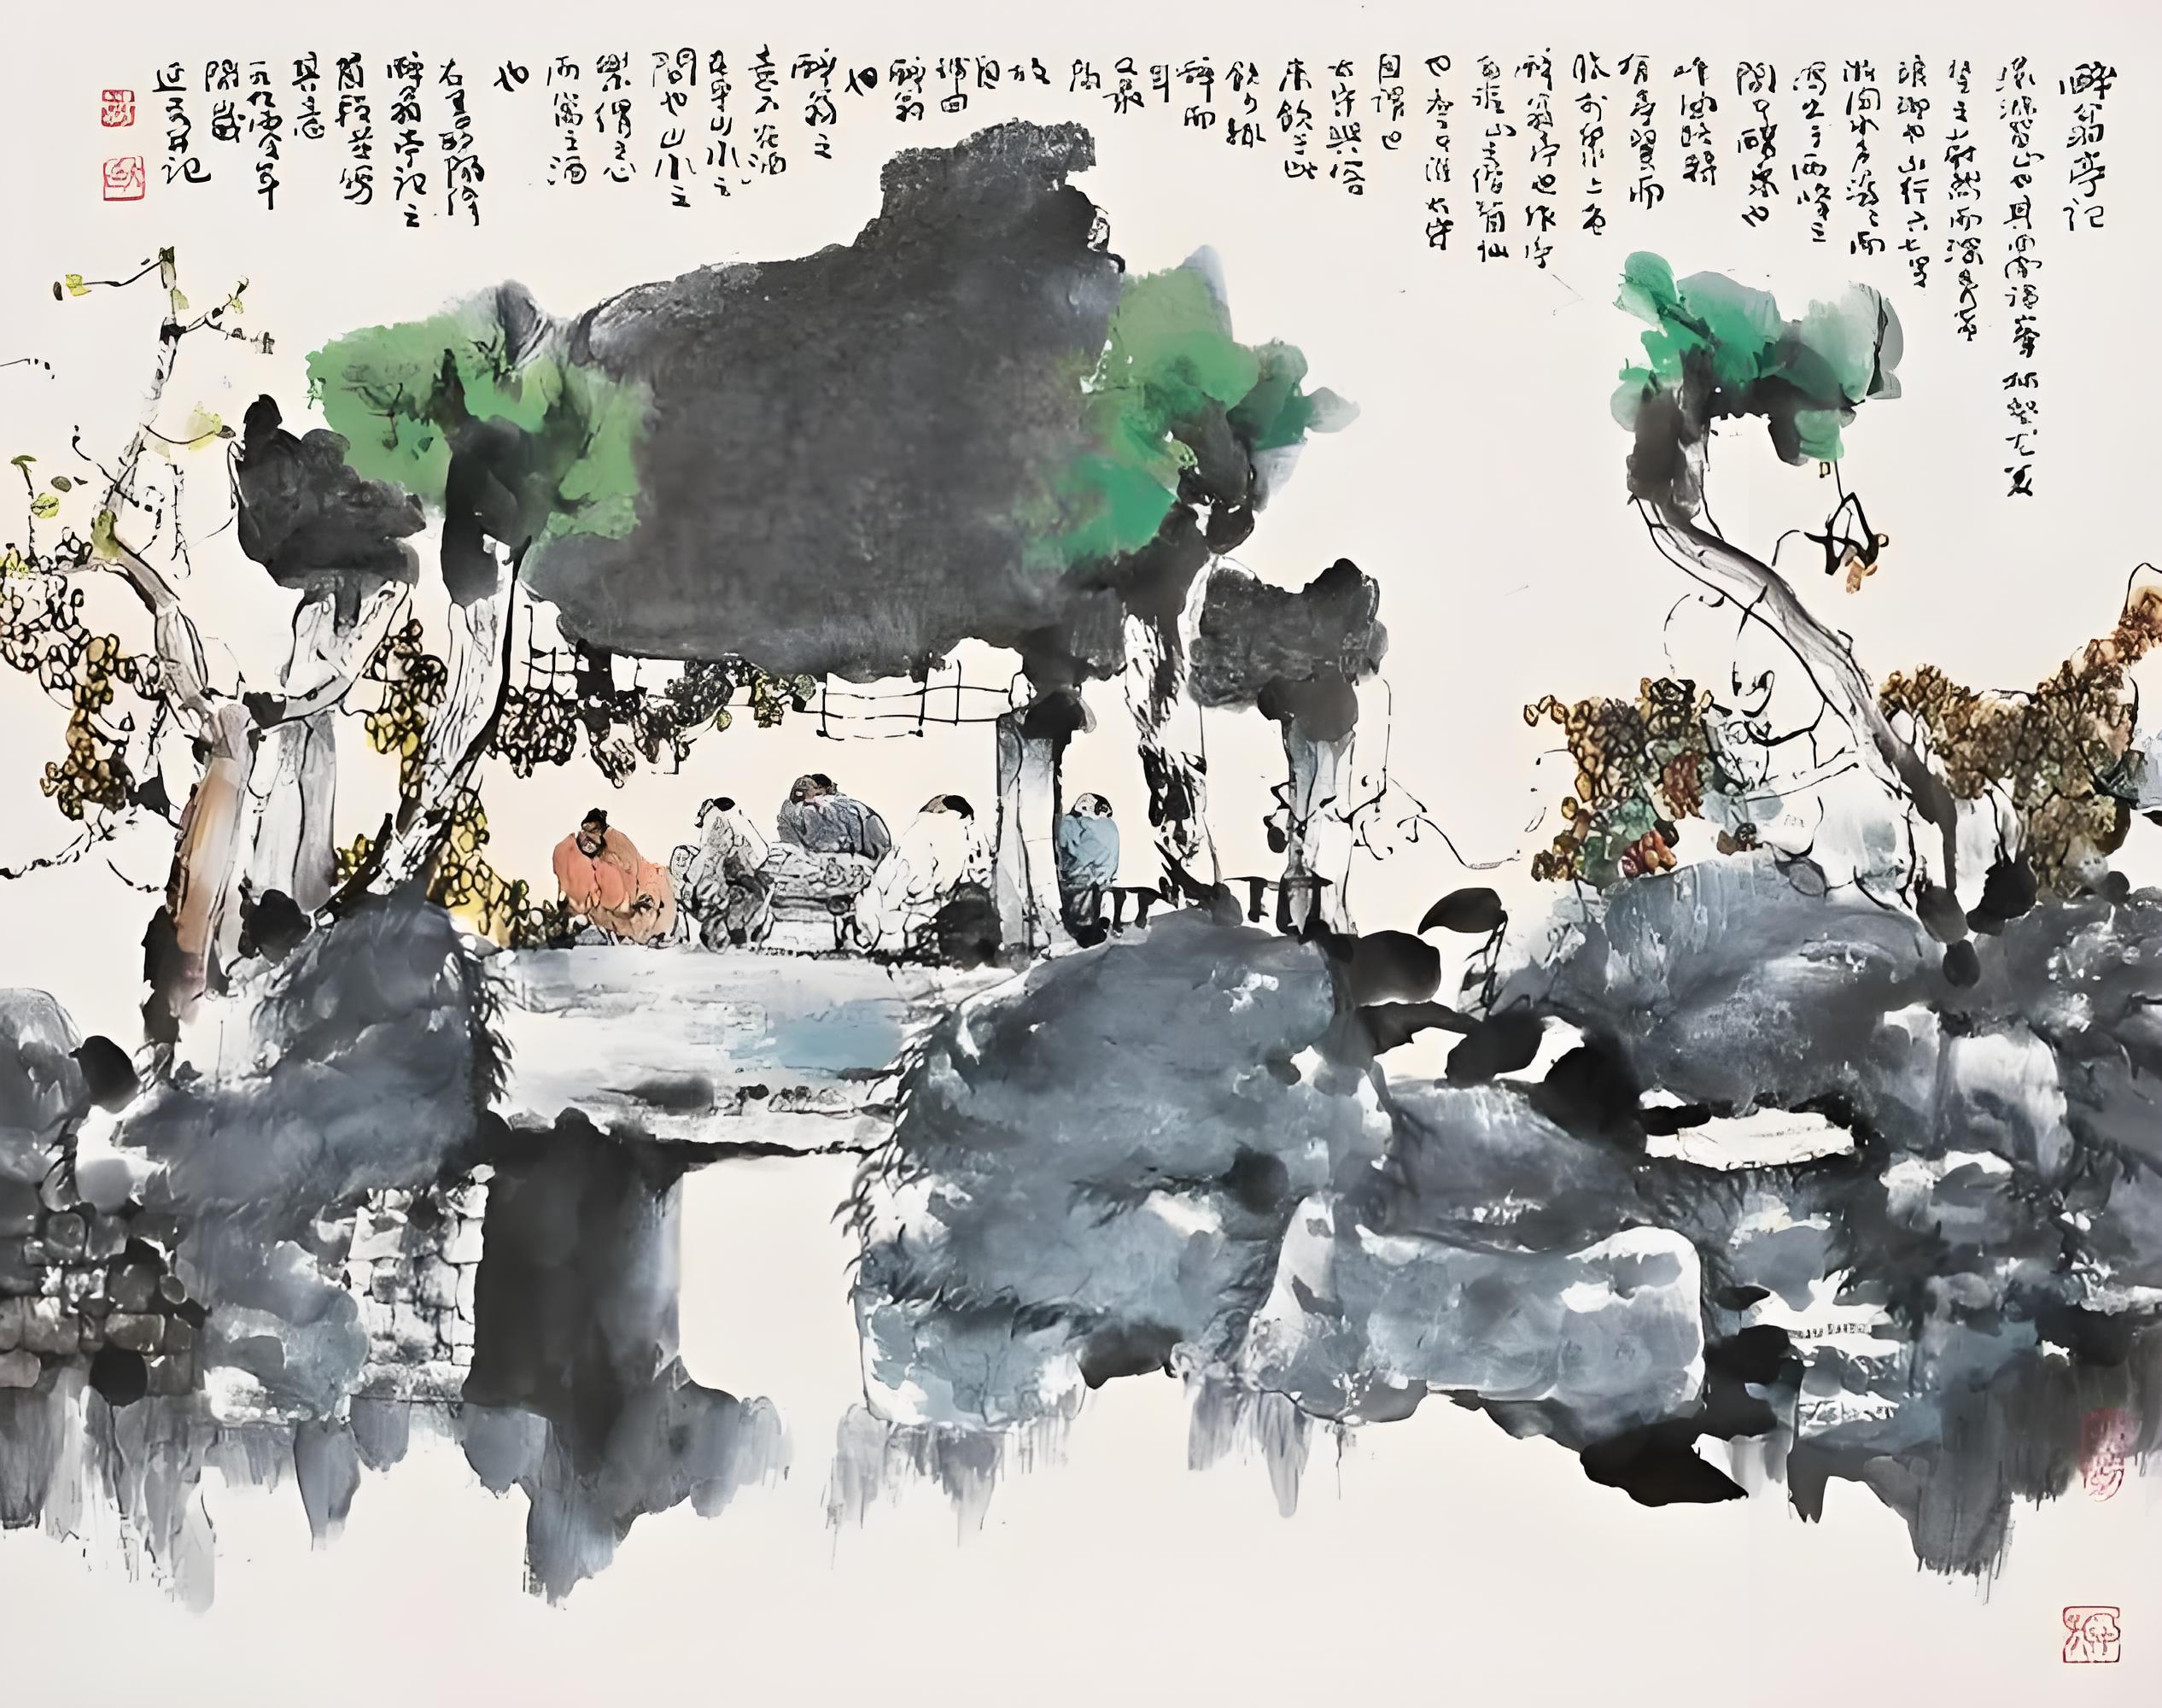 醉翁亭記
環滁皆山也其西南諸峯林壑尤美
望之蔚然而深秀者
琅琊也山行六七里
漸聞水聲潺潺而
瀉出于兩峯之
間者釀泉也
峰回路轉
有亭翼而
臨於泉上者
醉翁亭也作亭
者誰山之僧智仙
也名之者誰太守
自謂也
太守與客
來飲于此
飲少輒
醉而
年
又最
高
故
自
號曰
醉翁
也
醉翁之
意不在酒
在乎山水之
間也山水之
樂得之心
而寓之酒
也
右書歐陽修
醉翁亭記之
首段并寫
其意